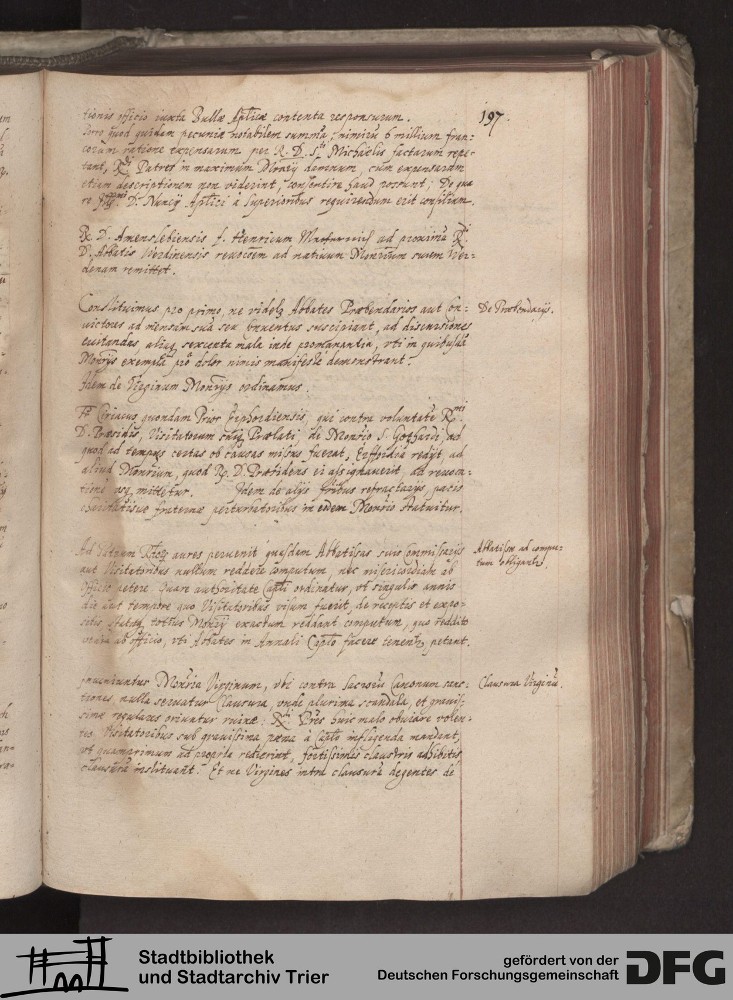 197.
tionis officio iuxta Bullæ Aplicæ contenta responsurum.
Porro quod quidam pecuniæ notabilem summã, nimirũ 6 millium fran=
corum ratione expensarum per R. D. S. Michaëlis factarum repe=
tant, Rdi Patres in maximum Ordinis damnum, cum expensarum
etiam descriptionem non viderint, consentire haud possunt; De qua
re D. Nuncij Aplici à superioribus requirendum erit consilium.
R. D. Amenslebiensis f. Henricum ad proximũ R.
D. Abbatis Werdinensis reuocem ad natiuum Monrium suum Wer=
denam remittet.
Constituimus pro primo, ne videlꝫ Abbates Præbendarios aut Con=
uictores ad mensam suã seu Conuentus suscipiant, ad discursiones
euitandas aliaqꝫ sexcenta mala inde promanantia, vti in quibusdã
Monrijs exempla prô dolor nimis manifestè demonstrant.
Idem de Virginum Monrijs ordinamus.
De Præbendarijs.
Fr. Ciriacus quondam Prior qui contra voluntatẽ Rmi
D. Præsidis, Visitatorum Prælati, de Monrio S. Gothardi, ad
quod ad tempus certas ob causas missus fuerat, Erffordiã redijt, ad
aliud Monrium, quod R. D. Præsidens ei assignauerit, ad
mittetur. Idem de alijs fribus refractarijs pacis
charitatisue fraternæ perturbatoribus in eodem Monrio statuitur.
Ad Patrum aures peruenit quasdam Abbatissas suis Commissarijs
aut Visitatoribus nullum reddere computum, nec misericordiam ab
Officio petere. Quare authoritate Capli ordinatur, vt singulis annis
die aut tempore quo Visitatoribus visum fuerit, de receptis et expo=
sitis totius Monrij exactum reddant computum, quo reddito
ab officio, vti Abbates in Annali Caplo facere tenentꝫ, petant.
Abbatissæ ad compu=
tum obligantꝫ.
Inueniuntur Monria Virginum, vbi contra sacrorũ Canonum sanc=
tiones, nulla seruatur Clausura, vnde plurima scandala, et grauis=
simæ regulares oriuntur ruinæ: Rdi Pres huic malo obuiare volen=
tes Visitatoribus sub grauissima pæna à Caplo infligenda mandant,
vt quamprimum ad propria redierint, fortissimis claustris adhibitis,
clausurã instituant. Et ne Virgines intra clausurã degentes de
Clausura Virginũ.
Stadtbibliothek
und Stadtarchiv Trier
gefördert von der
Deutschen Forschungsgemeinschaft
DFG